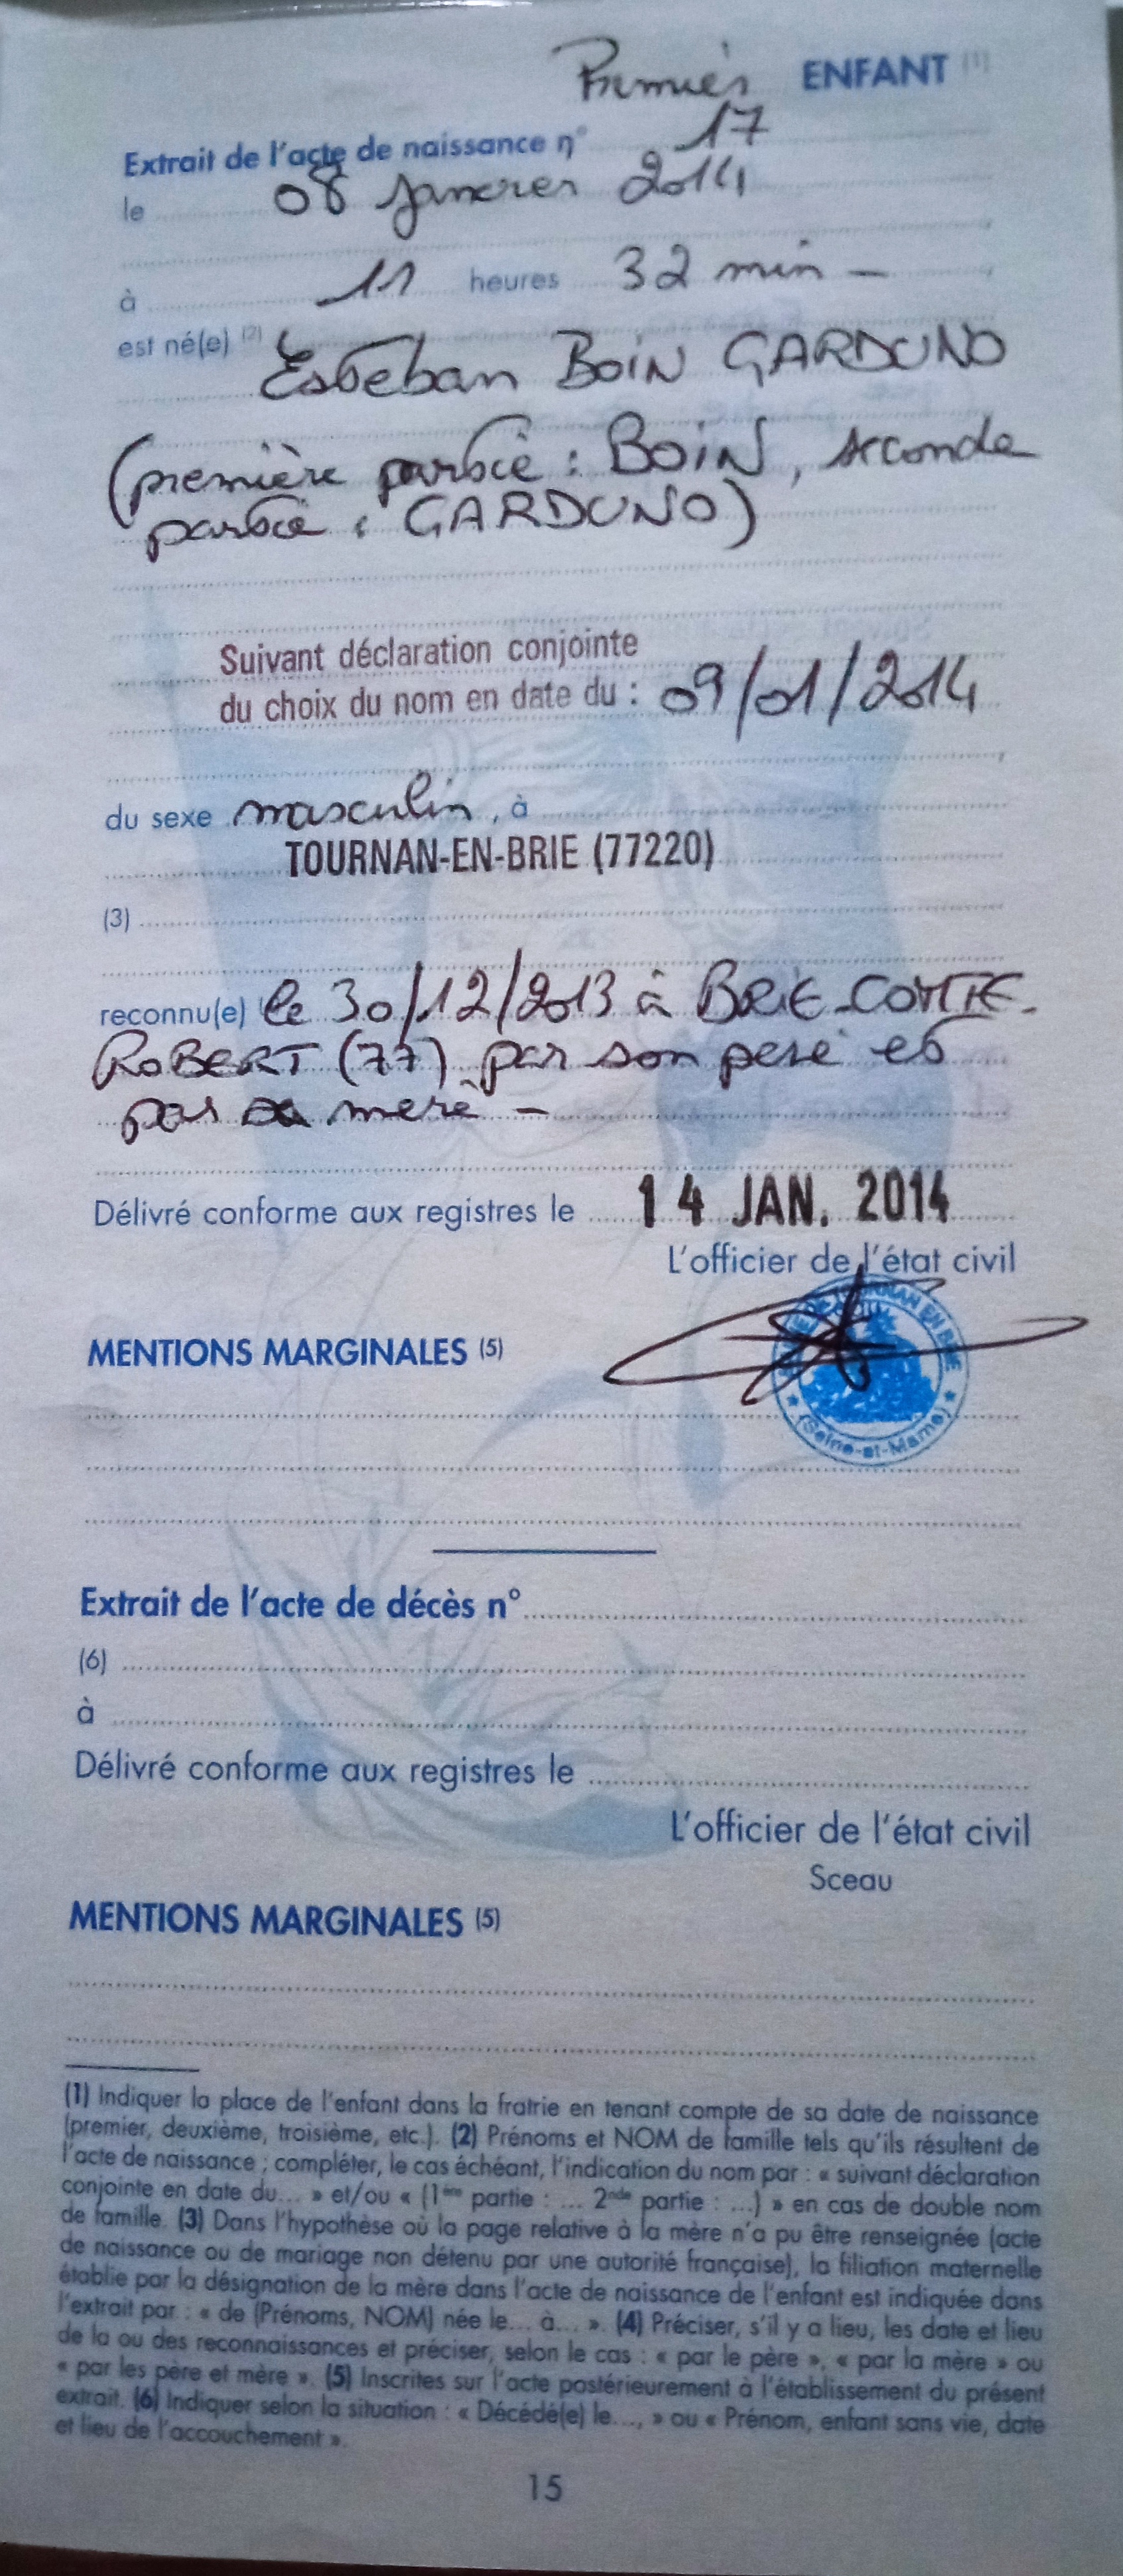 Premier ENFANT (1)
Extrait de l'acte de naissance n° 17
le 08 Janvier 2014
à 11 heures 32 min –
est né(e) (2) Esteban BOIN GARDUNO
(première partie : BOIN, seconde
partie : GARDUNO)
Suivant déclaration conjointe
du choix du nom en date du : 09/01/2014
du sexe masculin, à
TOURNAN-EN-BRIE (77220)
(3)
reconnu(e) le 30/12/2013 à BRIE-COMTE-
ROBERT (77) par son père et
par sa mère –
Délivré conforme aux registres le 14 JAN. 2014
L'officier de l'état civil
MAIRIE DE TOURNAN EN BRIE
(Seine-et-Marne)
MENTIONS MARGINALES (5)
Extrait de l'acte de décès n°
(6)
à
Délivré conforme aux registres le
L'officier de l'état civil
Sceau
MENTIONS MARGINALES (5)
(1) Indiquer la place de l'enfant dans la fratrie en tenant compte de sa date de naissance
(premier, deuxième, troisième, etc.). (2) Prénoms et NOM de famille tels qu'ils résultent de
l'acte de naissance ; compléter, le cas échéant, l'indication du nom par : « suivant déclaration
conjointe en date du... » et/ou « (1ère partie : ... 2nde partie : ...) » en cas de double nom
de famille. (3) Dans l'hypothèse où la page relative à la mère n'a pu être renseignée (acte
de naissance ou de mariage non détenu par une autorité française), la filiation maternelle
établie par la désignation de la mère dans l'acte de naissance de l'enfant est indiquée dans
l'extrait par : « de (Prénoms, NOM) née le... à... ». (4) Préciser, s'il y a lieu, les date et lieu
de la ou des reconnaissances et préciser, selon le cas : « par le père », « par la mère » ou
« par les père et mère ». (5) Inscrites sur l'acte postérieurement à l'établissement du présent
extrait. (6) Indiquer selon la situation : « Décédé(e) le..., » ou « Prénom, enfant sans vie, date
et lieu de l'accouchement ».
15